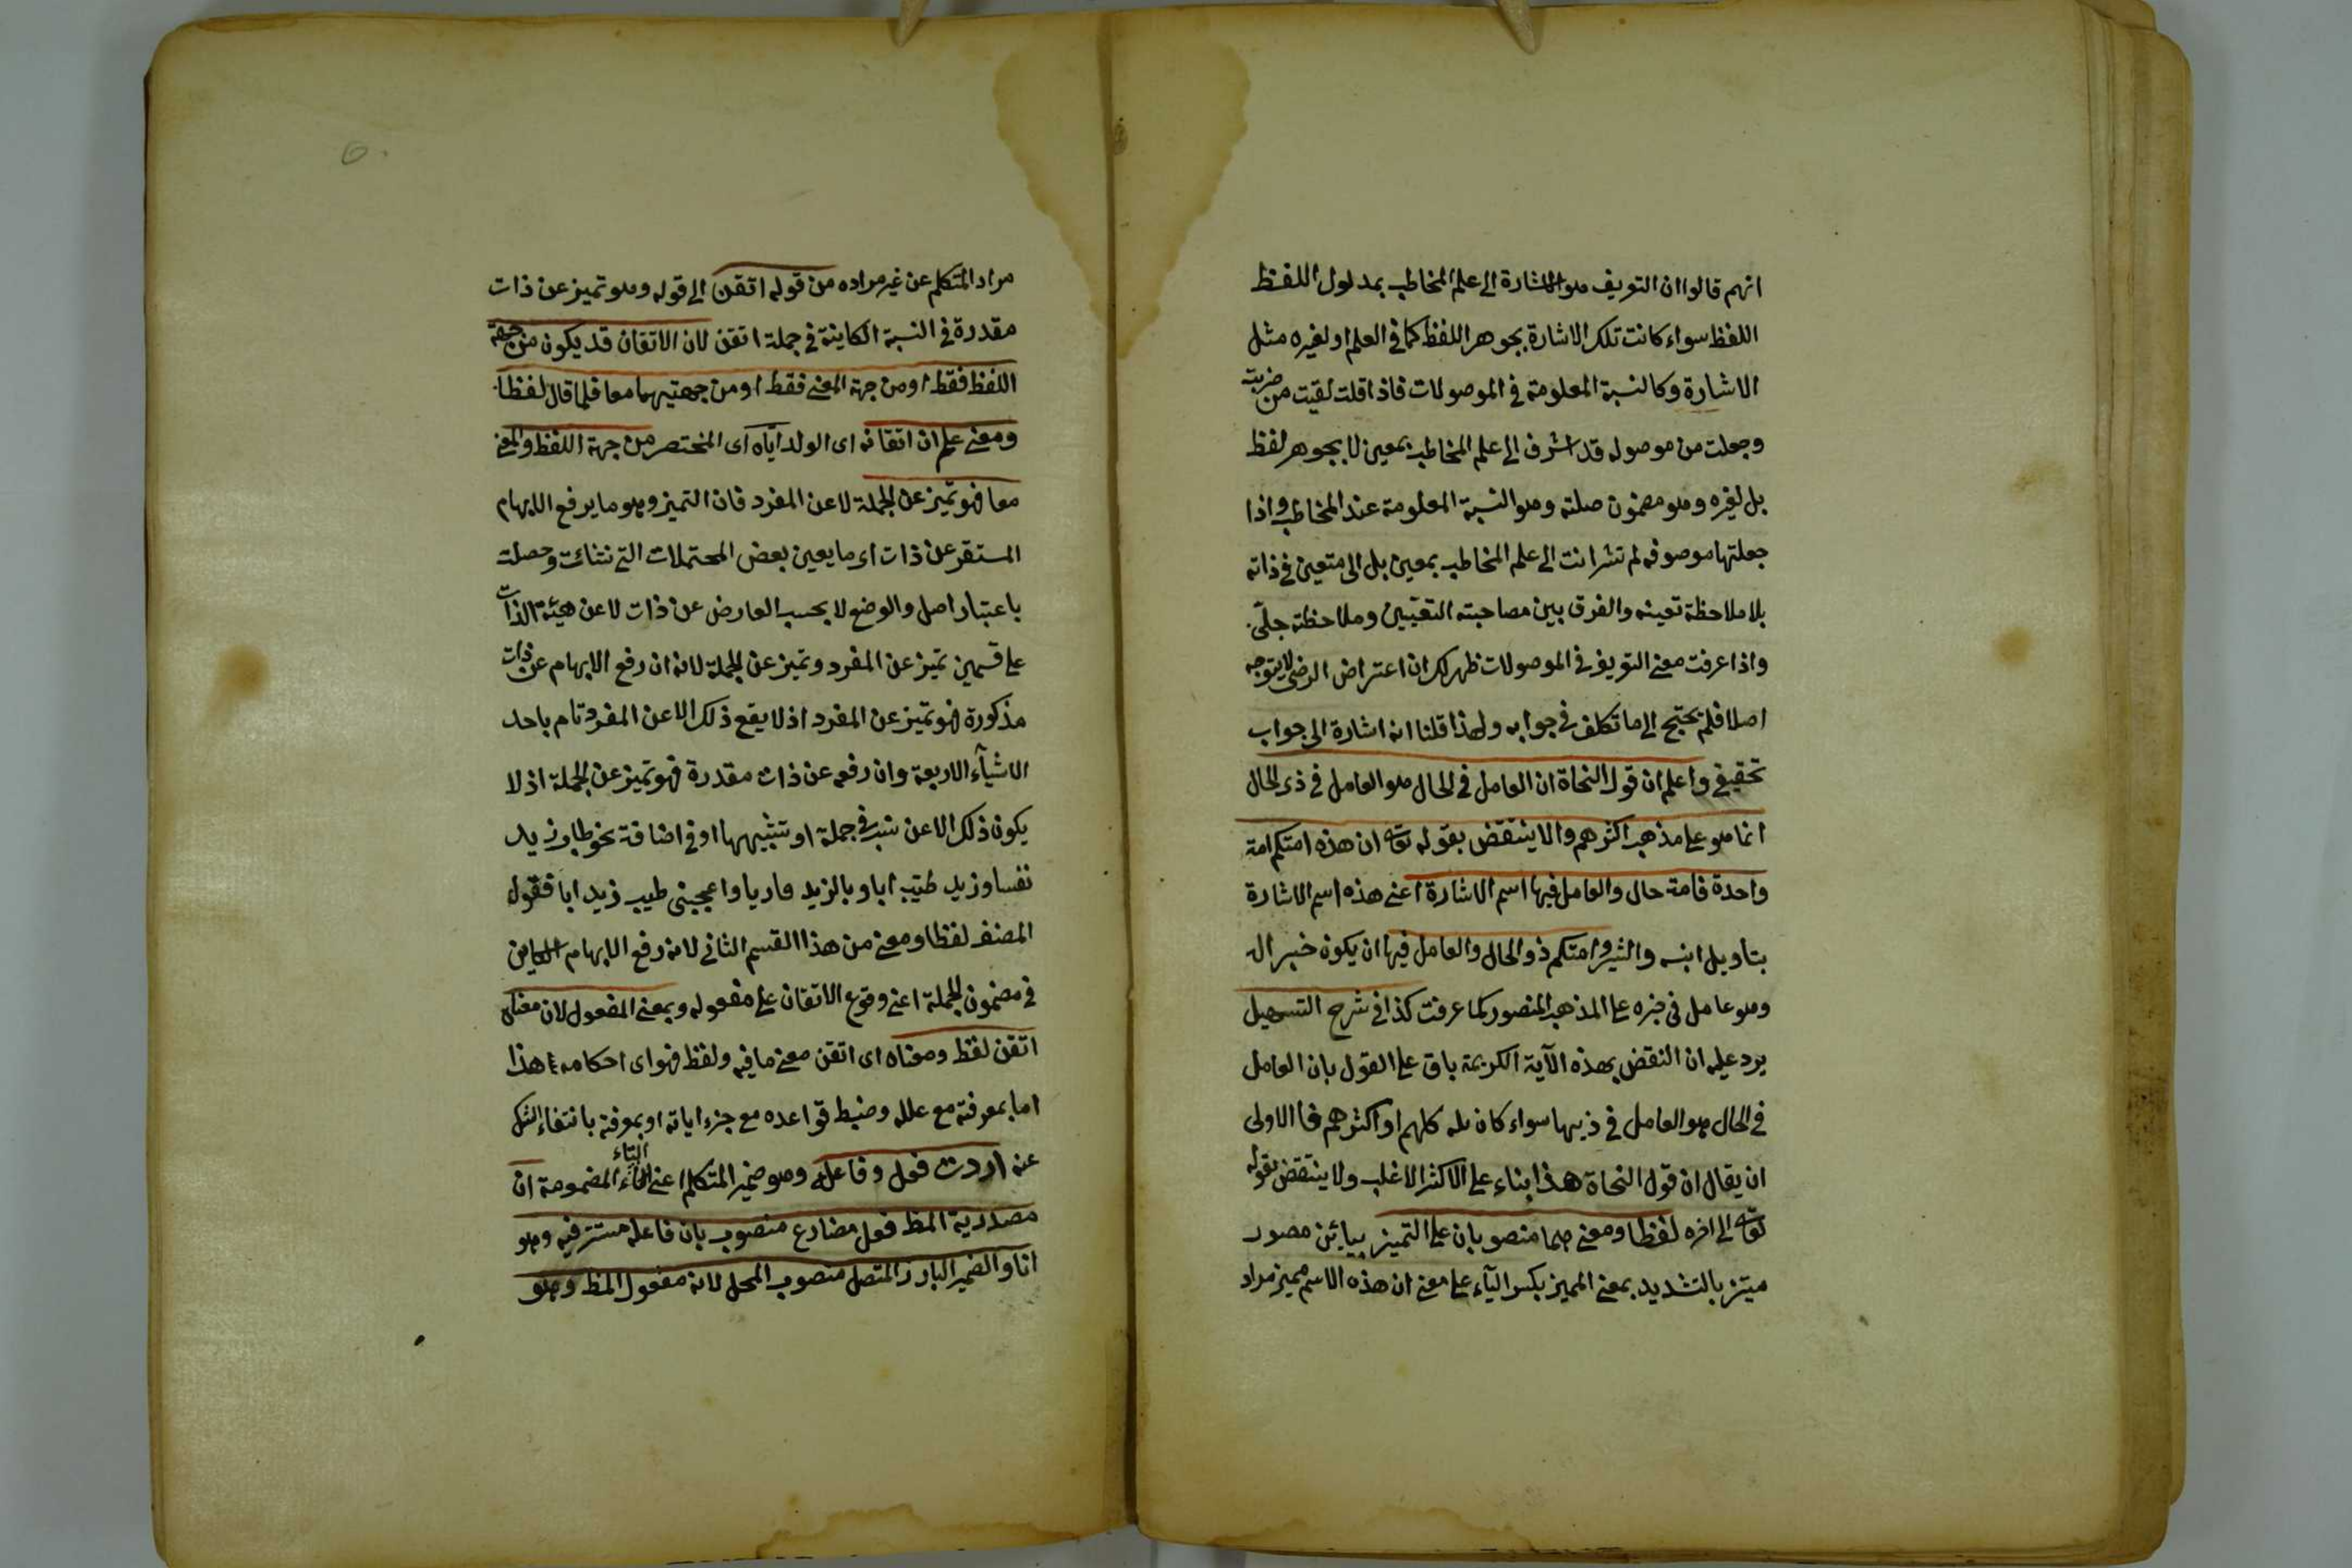 انهم قالوا ان التعريف هو الاشارة الى علم المخاطب بمدلول اللفظ
اللفظ سواء كانت تلك الاشارة بجوهر اللفظ كما فى العلم او لغيره مثل
الاشارة وكالنسبة المعلومة فى الموصولات فاذا قلت لقيت من ضربته
وجعلت من موصوله قد اشرف الى علم المخاطب بمعين لا بجوهر لفظ
بل لغيره وهو مضمون صلته وهو النسبة المعلومة عند المخاطب واذا
جعلتها موصوفه لم تشر انت الى علم المخاطب بمعين بل الى متعين فى ذاته
بلا ملاحظة تعينه والفرق بين مصاحبته التعيين وملاحظته جلّى
واذا عرفت معنى التعريف فى الموصولات ظهر لك ان اعتراض الرضى لا يتوجه
اصلا فلم يحتج الى ما تكلف فى جوابه ولهذا قلنا انه اشارة الى جواب
تحقيقى واعلم ان قول النحاة ان العامل فى الحال هو العامل فى ذى الحال
انما هو على مذهب اكثرهم والا ينتقض بقوله تعه ان هذه امتكم امة
واحدة فامة حال والعامل فيها اسم الاشارة اعنى هذه اسم الاشارة
بتاويل انبه والثير وامتكم ذو الحال والعامل فيها ان يكون خبر اله
وهو عامل فى خبره على المذهب المنصور كما عرفت كذا فى شرح التسهيل
يرد عليه ان النقض بهذه الآية الكريمة باق على القول بان العامل
فى الحال هو العامل فى ذيها سواء كان كلهم او اكثرهم فا الاولى
ان يقال ان قول النحاة هذا بناء على الاكثر الاغلب ولا ينتقض بقوله
تعه الى اخره لفظا ومعنى هما منصوبان على التميز بيائين مصدر
ميّز بالتشديد بمعنى المميز بكسر اليآء على معنى ان هذه الاسم مميز مراد
مراد المتكلم عن غير مراده من قوله اتقن الى قوله وهو تميز عن ذات
مقدرة فى النسبة الكاينة فى جملة اتقن لان الاتقان قد يكون من جهة
اللفظ فقط او من جهة المعنى فقط او من جهتيهما معا فلما قال لفظا
ومعنى علم ان اتقانه اى الولد اياه اى المختصر من جهة اللفظ والمعنى
معا فهو تميز عن الجملة لا عن المفرد فان التميز وهو ما يرفع الابهام
المستقر عن ذات اى ما يعين بعض المحتملات التى نشائت وحصلت
باعتبار اصل والوضع لا بحسب العارض عن ذات لا عن هيئة الذات
على قسمين تميز عن المفرد وتميز عن الجملة لانه ان رفع الابهام عن ذات
مذكورة فهو تميز عن المفرد اذ لا يقع ذلك الا عن المفرد تام باحد
الاشيآء الاربعة وان رفعه عن ذات مقدرة فهو تميز عن الجملة اذ لا
يكون ذلك الا عن نسبة فى جملة او شبيهها او فى اضافة نحو طاب زيد
نفسا وزيد طيّب ابا و يا لزيد فارسا واعجبنى طيب زيد ابا فقول
المصنف لفظا ومعنى من هذا القسم الثانى لانه رفع الابهام الكاين
فى مضمون الجملة اعنى وقوع الاتقان على مفعوله وبمعنى المفعول لان معناه
اتقن لفظ ومعناه اى اتقن معنى ما فيه ولفظ فهو اى احكامه هذا
اما بمعرفة مع علله وضبط قواعده مع جزء اياته او بمعرفة بانتفاء الشك
عنه اردت فعل وفاعله وهو ضمير المتكلم اعنى التاء المضمومة ان
التاء
مصدرية المظ فعل مضارع منصوب بان فاعله مستتر فيه وهو
انا والضمير البارز المتصل منصوب المحل لانه مفعول المظ وهو